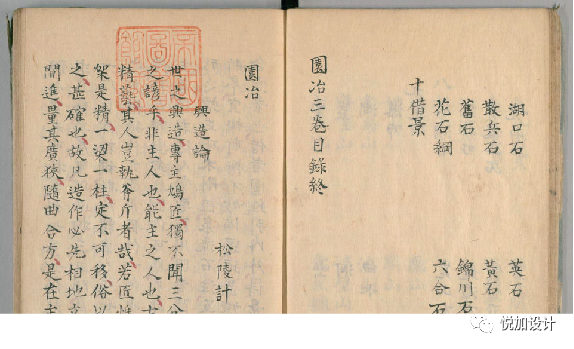 湖口石 英石
散兵石 黃石
舊石 錦川石
花石綱 六合石
十借景
園冶三卷目錄終
園冶
興造論
松陵計
世之興造專主鳩匠獨不聞三分
之諺乎非主人也能主之人也古
精藝其人豈執斧斤者哉若匠惟
架是精一梁一柱定不可移俗以
之甚確也故凡造作必先相地立
間進量其廣狹隨曲合方是在主
悦加设计